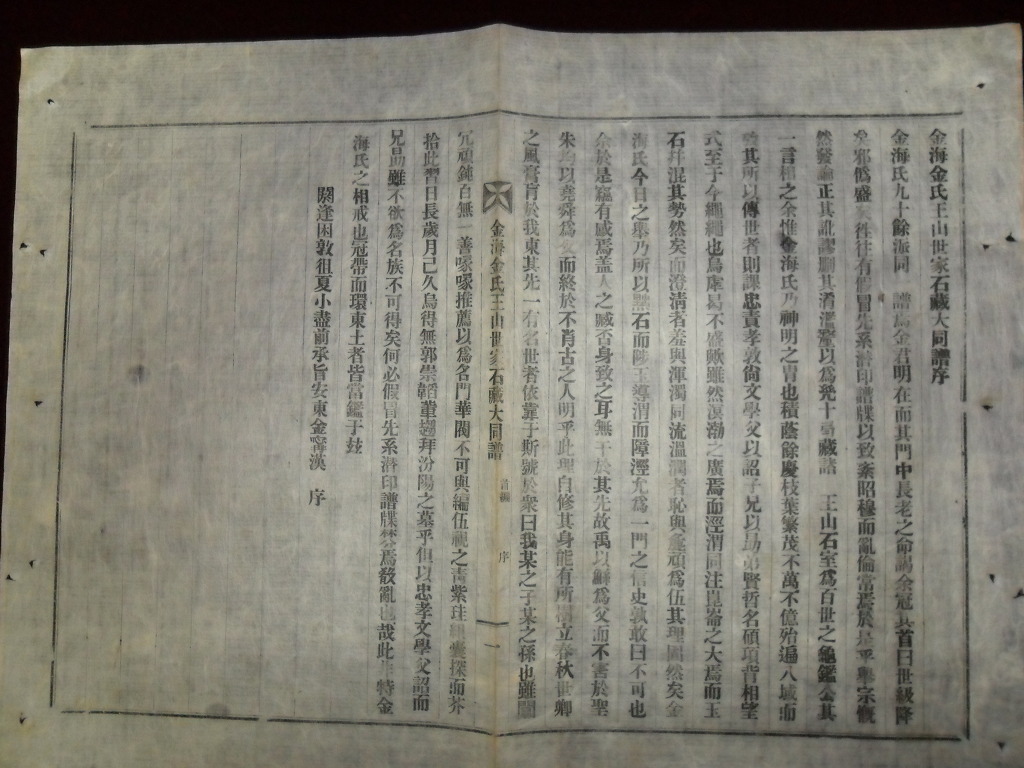 金海金氏王山世家石藏大同譜序
金海氏九十餘派同 譜爲金君明在而其門中長老之命謁余冠其首曰世級降
矣邪僞盛 往往有假冒先系潜印譜牒以致紊昭穆而亂倫常焉於是乎擧宗慨
然發論正其訛謬刪其淆濁鋟以爲 十 藏諸 王山石室爲百世之龜鑑公其
一言相之余惟金海氏乃神明之冑也積蔭餘慶枝葉繁茂不萬不億殆遍八域而
其所以傳世者則課忠責孝敦尙文學父以詔子兄以勗弟賢哲名碩項背相望
式至于今繩繩也烏虖曷不盛歟雖然溟渤之廣焉而涇渭同注崑崙之大焉而玉
石幷混其勢然矣而澄淸者羞與渾濁同流溫潤者恥與麁頑爲伍其理固然矣金
海氏今日之擧乃所以黜石而陟王導渭而障涇允爲一門之信史孰敢曰不可也
余於是竊有感焉盖人之臧否身致之耳無干於其先故禹以鯀爲父而不害於聖
朱均以堯舜爲父而終於不肖古之人明乎此理自修其身能有所樹立春秋世卿
之風膏肓於我東其先一有名世者依靠于斯號於衆曰我某之子某之孫也雖闒
冗頑鈍百無一善啄啄推薦以爲名門華閥不可與編伍視之靑紫珪組囊探而芥
拾此習日長歲月已久烏得無郭崇韜董 拜汾陽之墓乎但以忠孝文學父詔而
兄勗雖不欲爲名族不可得矣何必假冒先系潜印譜牒 焉散亂也哉此 特金
海氏之相戒也冠帶而環東土者皆當鑑于玆
閼逢困敦徂夏小盡前承旨安東金甯漢 序
金海金氏王山世家石藏大同譜 首編 序 一